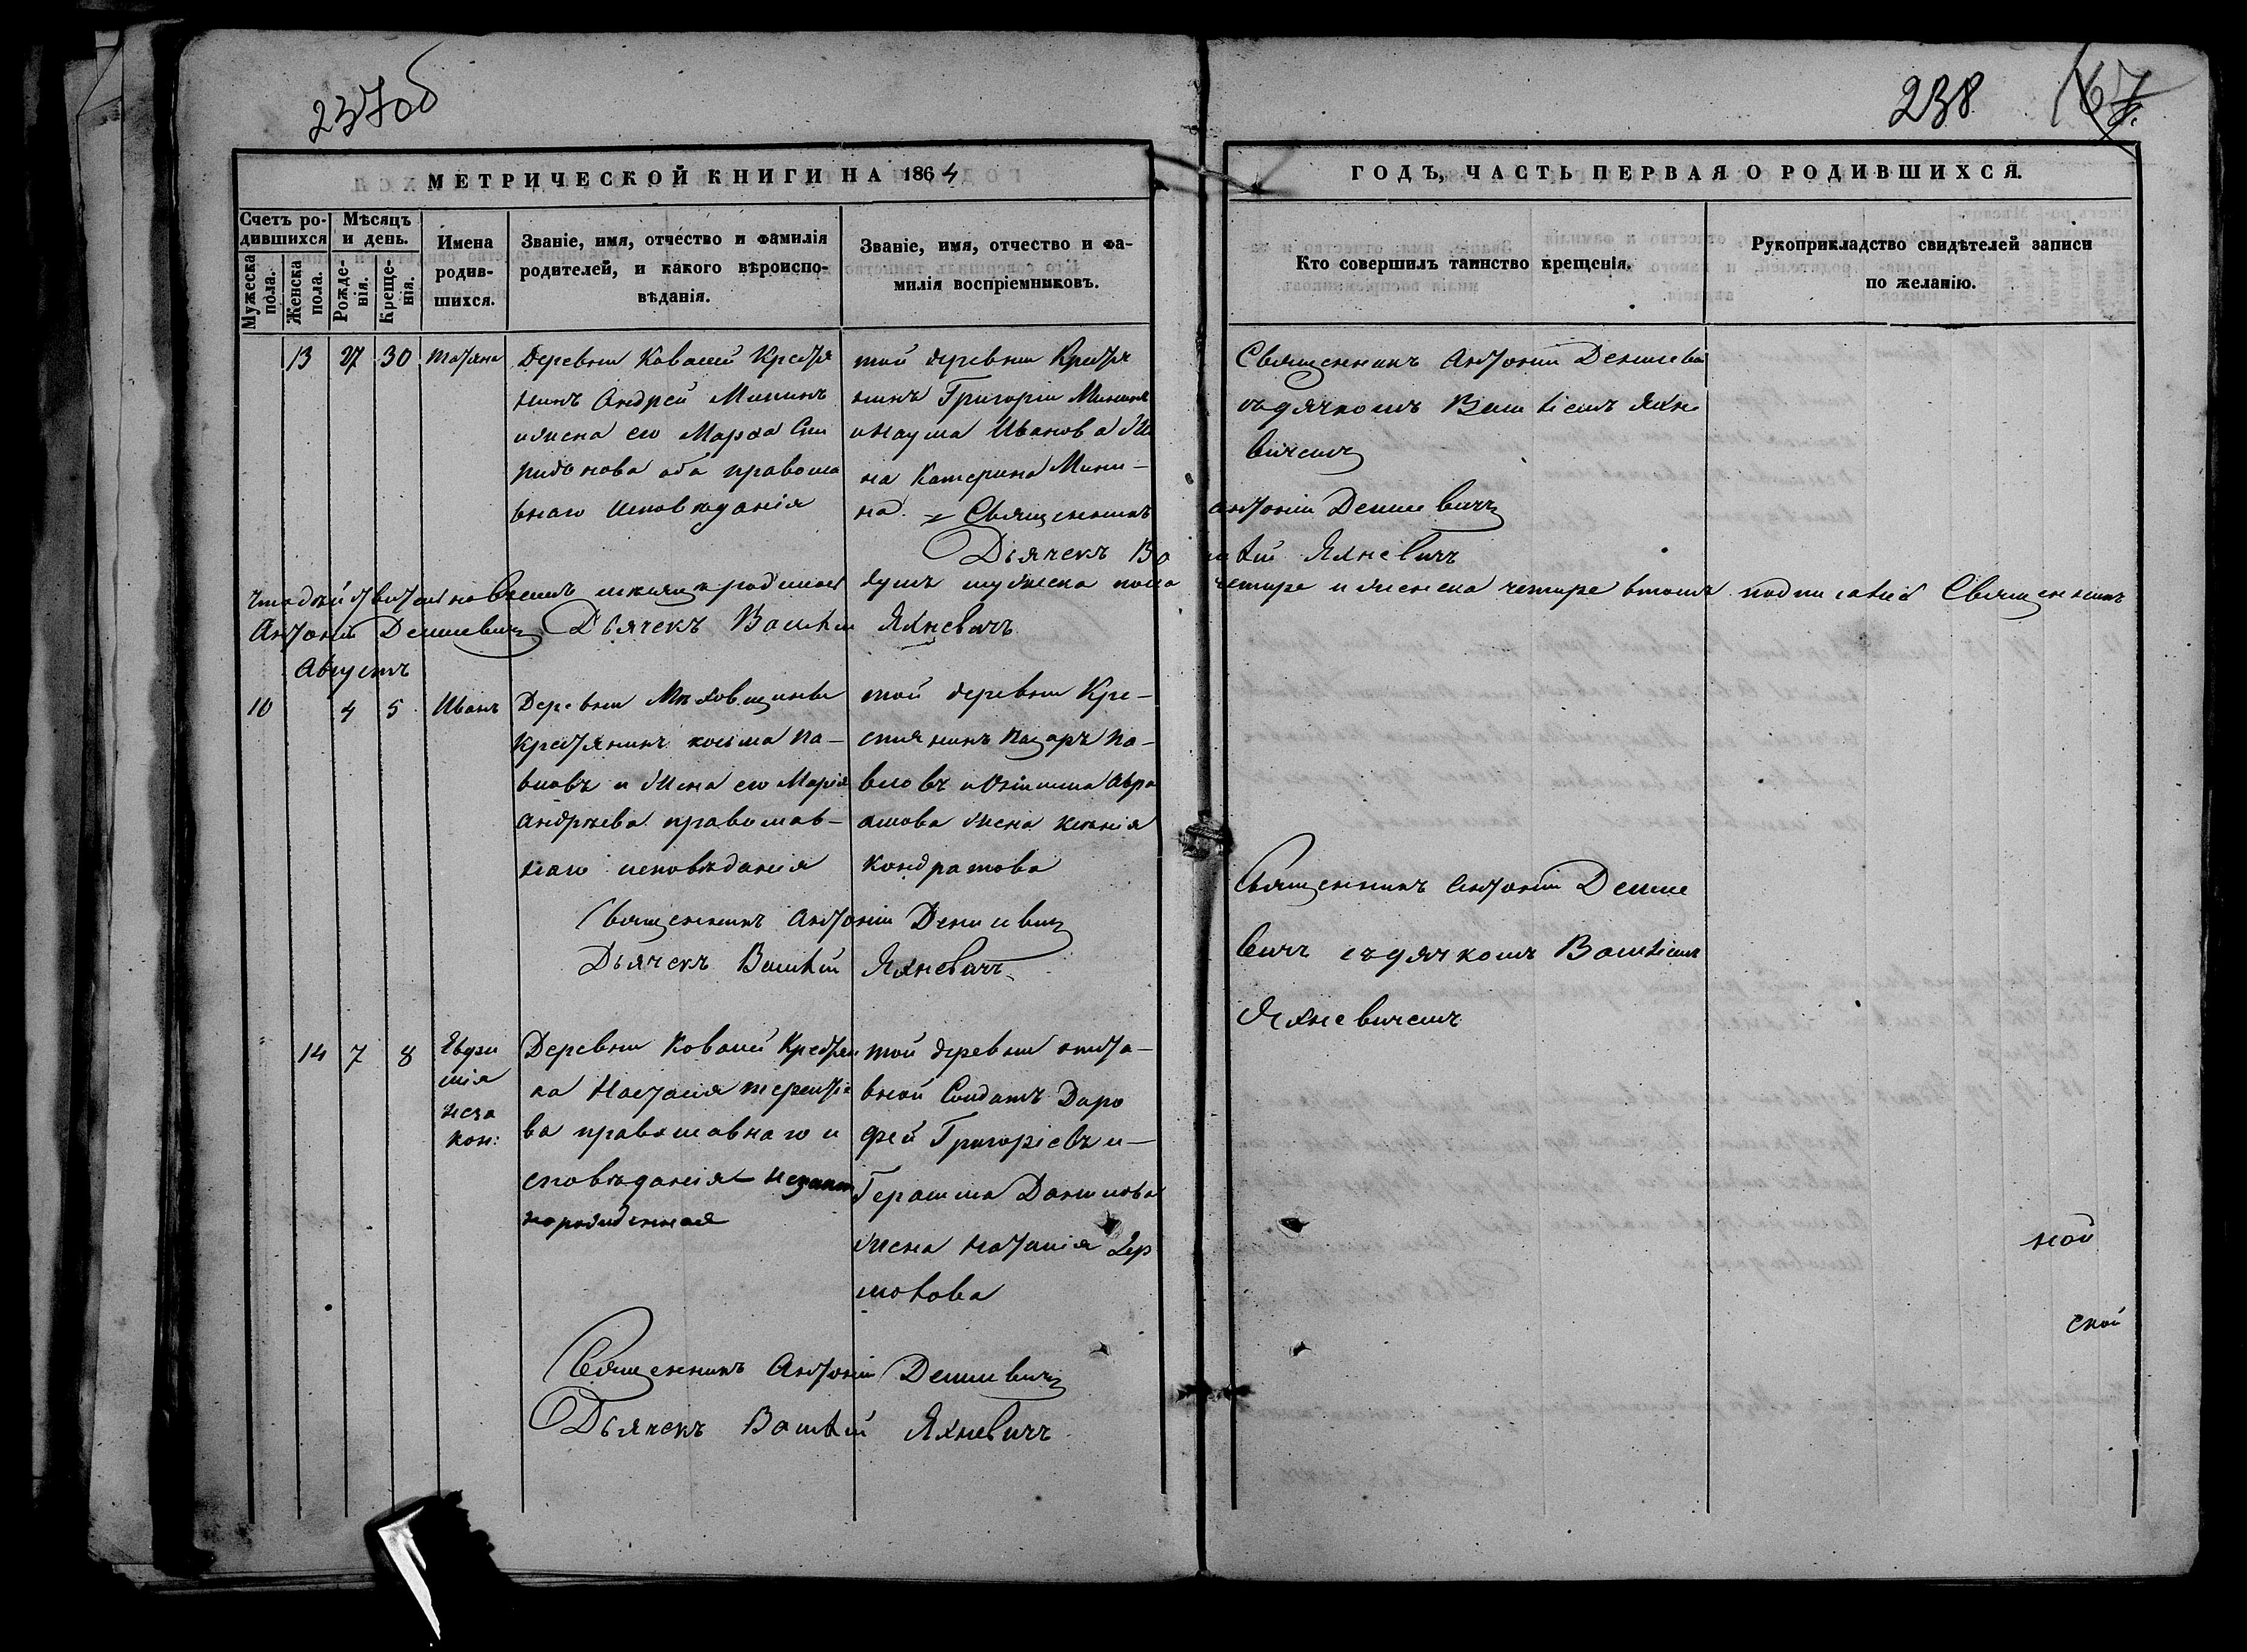 237об
238
МЕТРИЧЕСКОЙ КНИГИ НА 1864
ГОДЪ, ЧАСТЬ ПЕРВАЯ О РОДИВШИХСЯ.
Счетъ ро-
дившихся
Мужеска
пола.
Женска
пола.
Мѣсяцъ
и день.
Рожде-
нія.
Креще-
нія.
Имена
родив-
шихся.
Званіе, имя, отчество и фамилія
родителей, и какого вѣроиспо-
вѣданія.
Званіе, имя, отчество и фа-
милія воспріемниковъ.
Кто совершилъ таинство крещенія.
Рукоприкладство свидѣтелей записи
по желанію.
13 27 30 Татяна
Деревни Ковалей Крестя
нинъ Андрей Мининъ
и жена его Марѳа Спи
ридонова оба правосла
внаго исповѣданія
той деревни Крестя
нинъ Григорій Мининъ
и Наума Иванова же
на Катерина Мини-
на. Священникъ Антоній Демшевичъ
Дьячекъ Василій Яхневичъ
Священникъ Антоній Демшеви
съ дячкомъ Василіемъ Яхне
вичемъ
что действительно в семъ месяце родилось душъ мужеска пола четире и женска четире в томъ подписался Священникъ
Антоній Демшевичъ Дьячекъ Василій Яхневичъ
Августъ
10 4 5 Иванъ
Деревни Мѣховщины
Крестянинъ Косма Па-
вловъ и жена его Марія
Андрѣева православ-
наго исповѣданія
той деревни Кре-
стянинъ Назаръ Па-
вловъ и Авра
амова жена Ксенія
Кондратова
Священникъ Антоній Демшевичъ
Дьячекъ Василій Яхневичъ
Священникъ Антоній Демше
вичъ съ дячкомъ Василіемъ
Яхневичемъ
14 7 8 Евфи
мія
неза
кон:
Деревни Ковалей Крестян
ка Настасія Терентіе
ва православнаго и
сповѣданія незакон
норожденная
той деревни отста-
вной Солдатъ Доро
фей Григоріевъ и
Герасима Данилова
жена Наталія
молова
Священникъ Антоній Демшевичъ
Дьячекъ Василій Яхневичъ
ной
ской